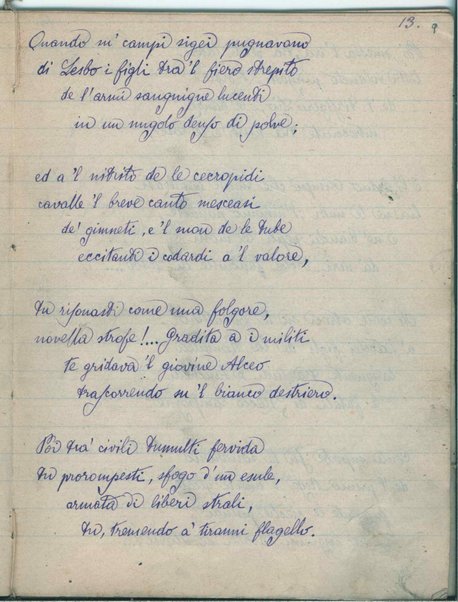 13. 9
Quando ne' campi sigei pugnavano
di Lesbo i figli tra 'l fiero strepito
de l'armi sanguigne lucenti
in un nugolo denso di polve;
ed a 'l nitrito de le cecropidi
cavalle 'l breve canto mesceasi
de' gimneti, e 'l suon de le tube
eccitanti i codardi a 'l valore,
tu risonasti come una folgore,
novella strofe!... Gradita a i militi
te gridava 'l giovine Alceo
trascorrendo su 'l bianco destriero.
Poi tra' civili tumulti fervida
tu prorompesti, sfogo d'un esule,
armata di liberi strali,
tu, tremendo a' tiranni flagello.